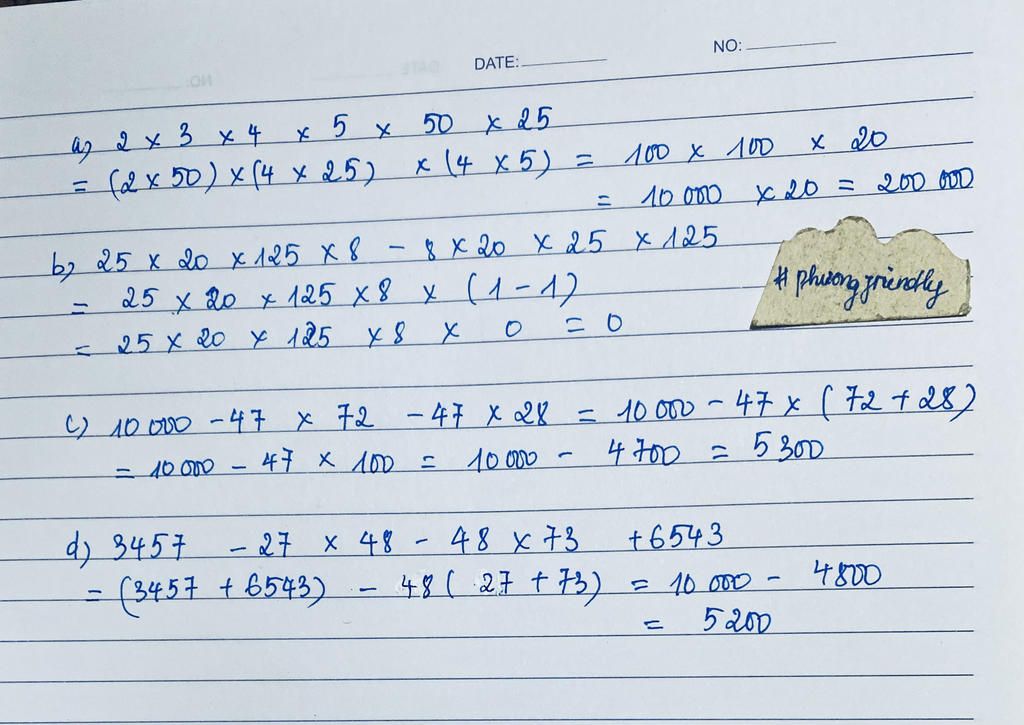 DATE:
NO:
a) 2 x 3 x 4 x 5 x 50 x 25
= (2 x 50) x (4 x 25) x (4 x 5) = 100 x 100 x 20
= 10 000 x 20 = 200 000
b) 25 x 20 x 125 x 8 - 8 x 20 x 25 x 125
= 25 x 20 x 125 x 8 x (1 - 1)
= 25 x 20 x 125 x 8 x 0 = 0
# phuongfriendly
c) 10 000 - 47 x 72 - 47 x 28 = 10 000 - 47 x (72 + 28)
= 10 000 - 47 x 100 = 10 000 - 4700 = 5300
d) 3457 - 27 x 48 - 48 x 73 + 6543
= (3457 + 6543) - 48 ( 27 + 73) = 10 000 - 4800
= 5200